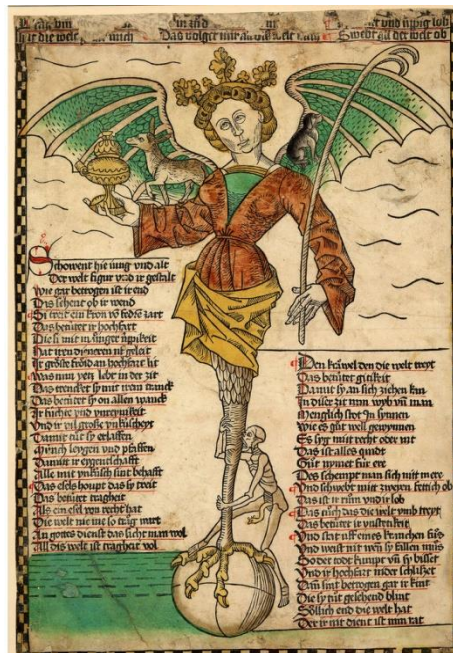 Das volget mir an
Swebt all der welt ob
Schowent hie iung vnd alt
Der welt figur vnd ir gestalt
Wie gar betrogen ist ir end
Das schent ob ir wend
Si treit ein kron vō
Das bedütet ir hochfart
Die si mit
Hat iren dieneren
Ir gröste fröid an hochfart
Was nun yetz lebt in der zit
Das trencket sy mit irem tranck
Das betütet sy on allen wanck
Ir füchte vnd vnreynikeit
Vnd ir vil große vnküscheyt
Damit tůt sy
münch leygen vnd pfaffen
Damit ir eygenschafft
Alle mit vnküsch sint behafft
Das esels houpt das sy treit
Das betütet tragheit
Als ein esel von recht hat
Die welt nie me so träg wart
An gottes dienst das sicht man wol
All dis welt ist tragheit vol
Den kräwel den die welt treyt
Das betütet gitikeit
Damit sy an sich ziehen kan
In diser zit nun wyb vnd man
Menglich stot In synnen
Wie es gůt well gewynnen
Es syg mit recht oder nit
Das ist alles quidt
Gůt nymet für ere
Des schempt man sich nüt mere
Vnd schwebt mit zweyen fettich ob
Das ist ir rům vnd ir lob
Das die welt vmb treyt
Das betütet ir
Vnd stat vff eines fůß
Vnd weist nit wen sy fallen můß
So der tod kumpt vnd sy bisset
Vnd ir hochfart nider schlisset
Dan sint betrogen gar ir kint
Die sy tůt gesehend blint
Söllich end die welt hat
Der ir nit dient ist min rat